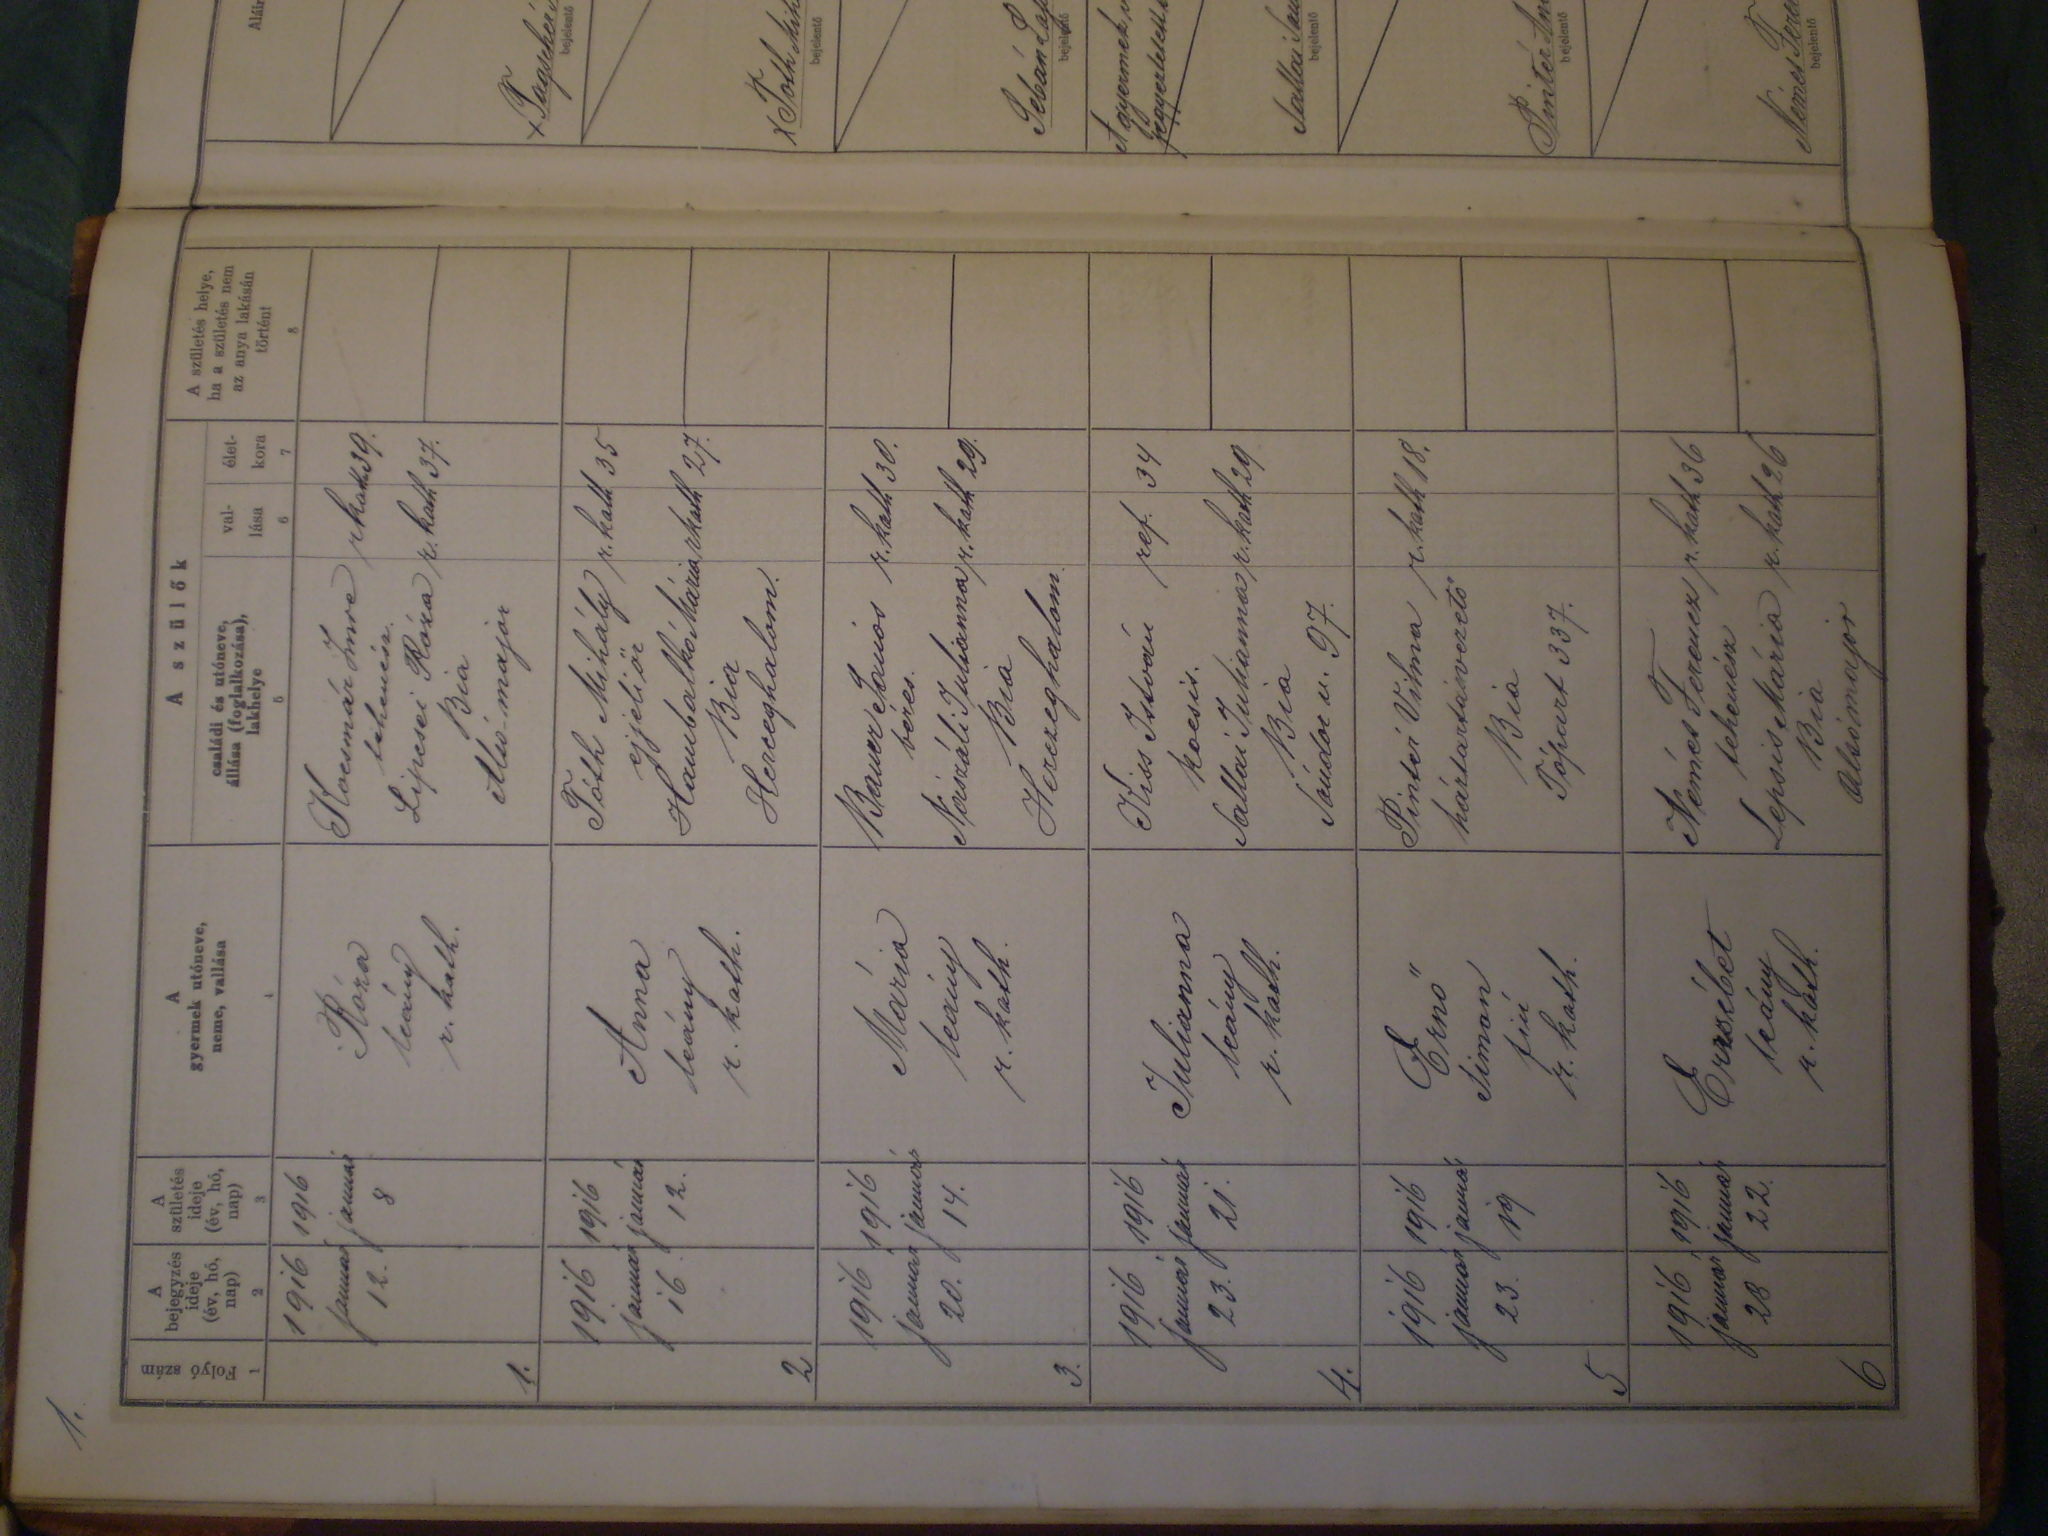 1.
Folyó szám
1
A bejegyzés ideje (év, hó, nap)
2
A születés ideje (év, hó, nap)
3
A gyermek utóneve, neme, vallása
4
A szülők
családi és utóneve, állása (foglalkozása), lakhelye
5
val-
lása
6
élet-
kora
7
A születés helye, ha a születés nem az anya lakásán történt
8
1.
1916 január 12.
1916 január 8
Róza
leány
r. kath.
Kocsmár Imre r kath 39.
tehenész.
Lipcsei Róza r. kath 37.
Bia
Alsó-major
2
1916 január 16
1916 január 12.
Anna
leány
r. kath.
Tóth Mihály r. kath 35
éjjeliőr
Hambalkó Mária r kath 27.
Bia
Herceghalom.
3.
1916 január 20.
1916 január 14.
Mária
leány
r. kath.
Bauer János r. kath 30.
béres.
Julianna r. kath 29.
Bia
Herczeghalom
4.
1916 január 23.
1916 január 21.
Julianna
leány
r. kath.
Kiss István ref. 34
kocsis.
Sallai Julianna r. kath 29
Bia
Sándor u. 97.
5
1916 január 23.
1916 január 19
Ernő
Simon
fiú
r. kath.
Pintér Vilma r. kath 18.
háztartásvezető
Bia
Tópart 337.
6
1916 január 28
1916 január 22.
Erzsébet
leány
r. kath.
Német Ferencz r. kath 36
tehenész
Lepsis Mária r. kath 26
Bia
Alsómajor
Aláír
bejelentő
Tóth Mih
bejelentő
bejelentő
A gyermek
Sallai
bejelentő
Pintér
bejelentő
Német Feren
bejelentő